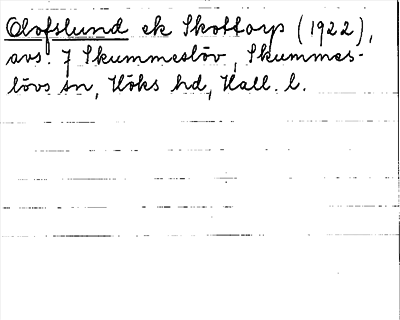 Olofslund ek Skottorp (1922),
avs. 7 Skummeslöv, Skummes-
lövs sn, Höks hd, Hall. l.